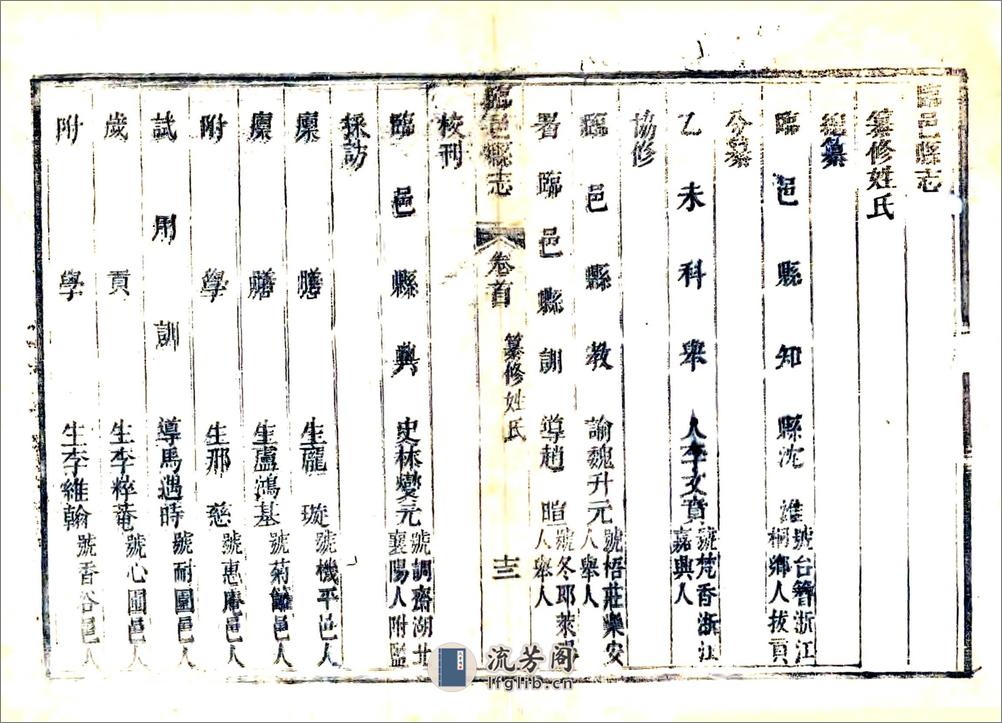 臨邑縣志
纂修姓氏
總纂
臨邑縣知縣沈淮號台簪浙江桐鄉人拔貢
分纂
乙未科舉人李文賁號梵香浙江嘉興人
協修
臨邑縣教諭魏升元號梧莊樂安人舉人
署臨邑縣訓導趙暄號冬耶萊人舉人
臨邑縣志 卷首 纂修姓氏 十三
校刊
臨邑縣典史林燮元號調齋湖北襄陽人附監
採訪
廩膳生龐璇號機平邑人
廩膳生盧鴻基號菊邑人
附學生邢慈號惠庵邑人
試用訓導馬遇時號耐圃邑人
歲貢生李粹菴號心圃邑人
附學生李維翰號香谷邑人
流芳阁
lfglib.cn